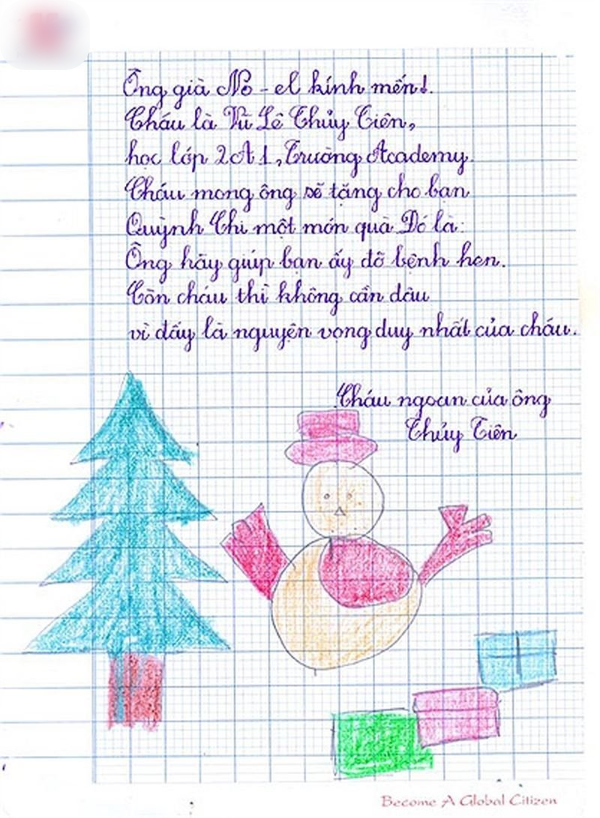 Ông già Nô-el kính mến!
Cháu là Vũ Lê Thủy Tiên,
học lớp 2A1, Trường Academy.
Cháu mong ông sẽ tặng cho bạn
Quỳnh Chi một món quà Đó là:
Ông hãy giúp bạn ấy đỡ bệnh hen.
Còn cháu thì không cần đâu
vì đấy là nguyện vọng duy nhất của cháu.
Cháu ngoan của ông
Thủy Tiên
Become A Global Citizen